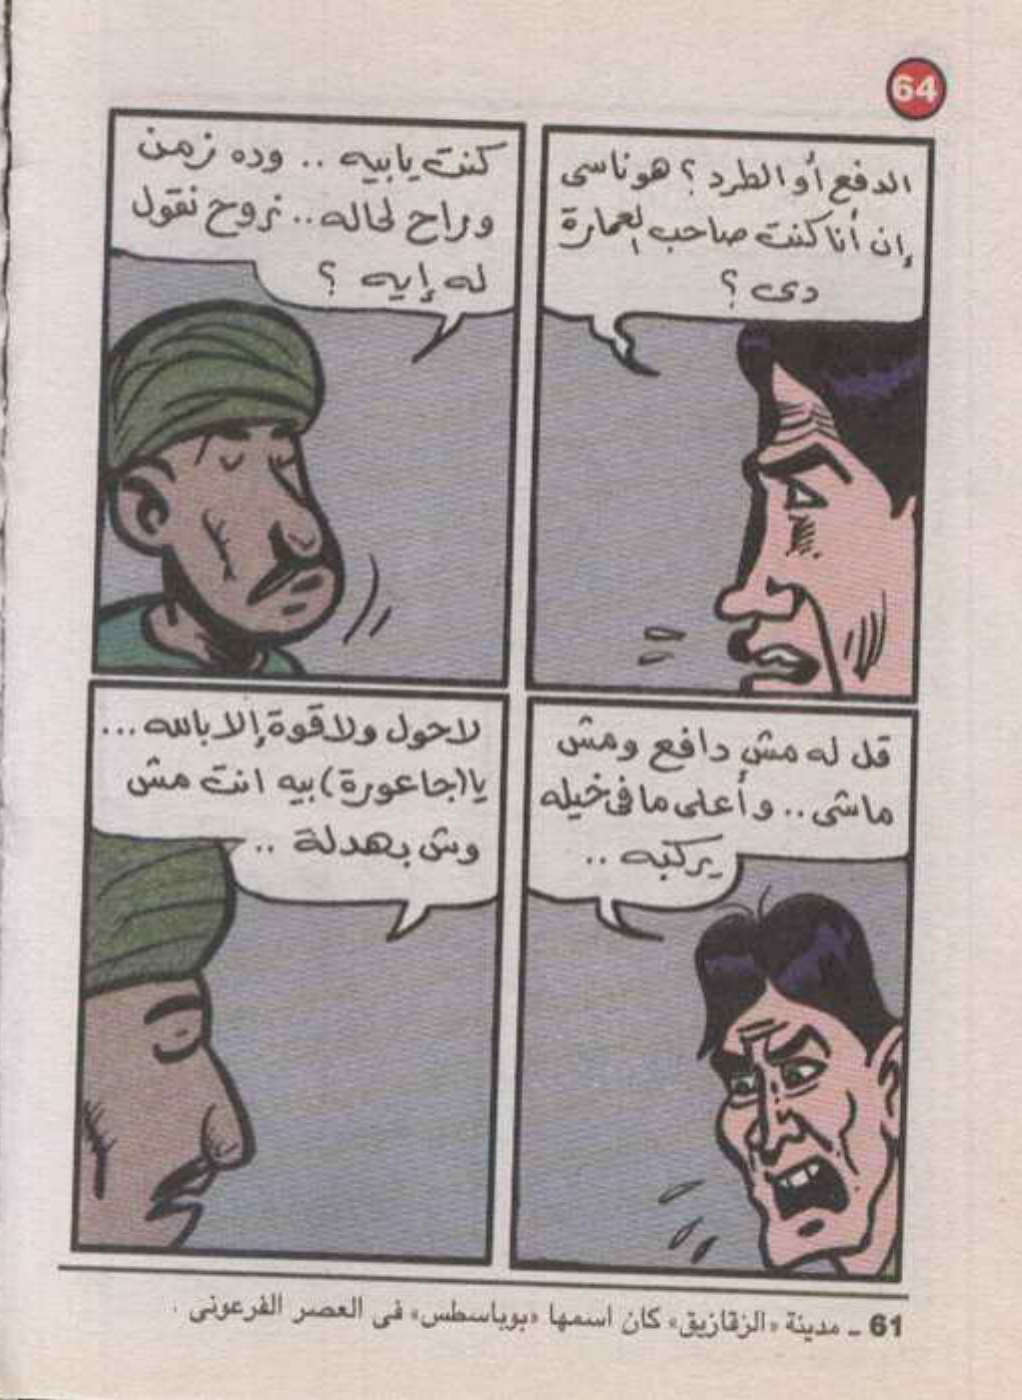 64
الدفع أو الطرد ؟ هو ناسى
إن أنا كنت صاحب العمارة
دى ؟
كنت يا بيه .. وده زمن
وراح لحاله .. نروح نقول
له إيه ؟
قل له مش دافع ومش
ماشى .. وأعلى ما فى خيله
يركبه ..
لا حول ولا قوة إلا بالله ...
يا (جاعورة) بيه انت مش
وش بهدلة ..
61 ـ مدينة «الزقازيق» كان اسمها «بوباسطس» فى العصر الفرعونى .